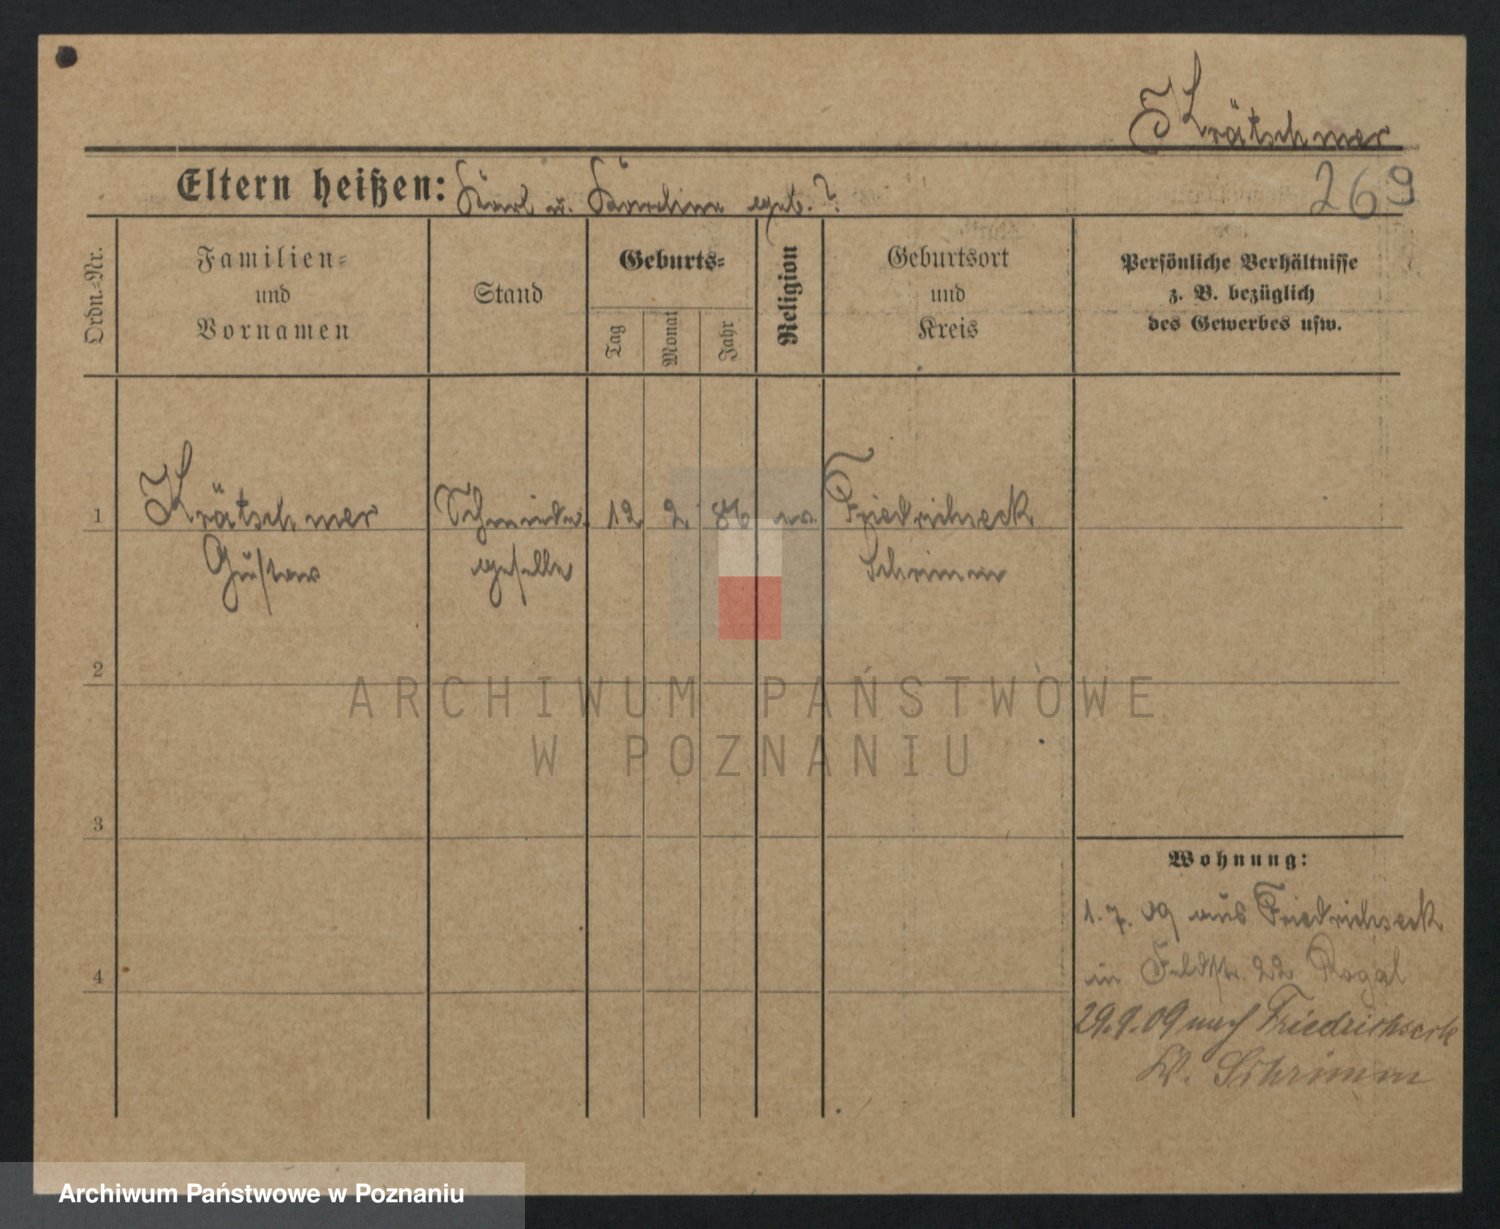 Krätschmer
269
Eltern heißen: Karl u. Karoline geb. ?
Ordn.-Nr.
Familien-
und
Vornamen
Stand
Geburts-
Tag
Monat
Jahr
Religion
Geburtsort
und
Kreis
Persönliche Verhältnisse
z. B. bezüglich
des Gewerbes usw.
1
Krätschmer
Gustav
geselle
12
2
86
ev
Friedrichseck
Schrimm
2
3
4
Wohnung:
1.7.09 aus Friedrichseck
in Feldstr. 22 Rogal
29.9.09 nach Friedrichseck
Kr. Schrimm
ARCHIWUM PAŃSTWOWE
W POZNANIU
Archiwum Państwowe w Poznaniu